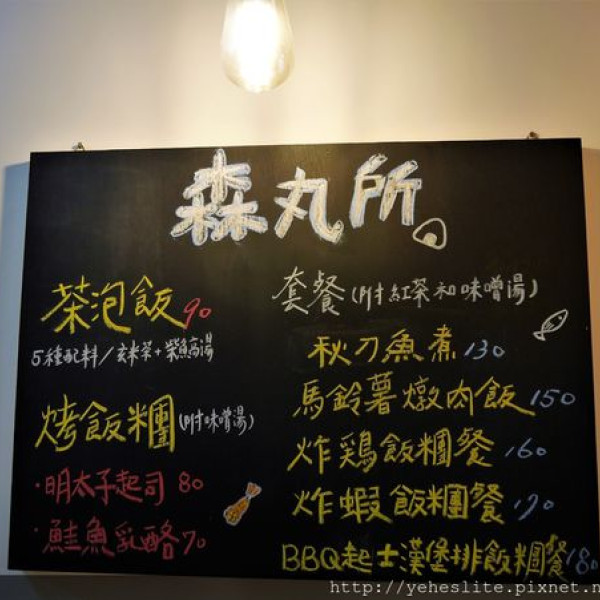 森丸所
茶泡飯 90
5種配料/玄米茶+柴魚高湯
烤飯糰(附味噌湯)
·明太子起司 80
·鮭魚乳酪 70
套餐(附紅茶和味噌湯)
秋刀魚煮 130
馬鈴薯燉肉飯 150
炸鶏飯糰餐 160
炸蝦飯糰餐 170
BBQ起士漢堡排飯糰餐 180
http://yeheslite.pixnet.n